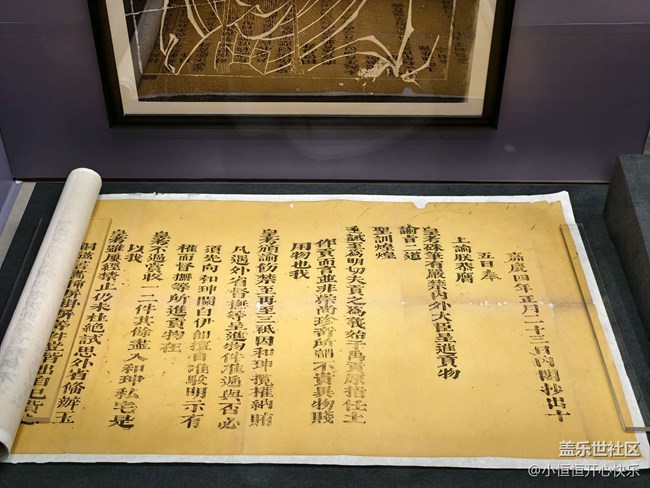 嘉慶四年正月二十三日內閣抄出十
五日奉
上諭朕恭閱
皇考硃筆有嚴禁內外大臣呈進貢物
諭旨二道
聖訓煌煌
垂誡至為明切夫貢之為義始于禹貢原指任土
作貢而言並非崇尚珍奇所謂不貴異物賤
用物也我
皇考頒諭飭禁至再至三祗因和珅攬權納賄
凡遇外省督撫等呈進物件准遞與否必
須先向和珅關白伊即擅自准駁明示有
權而督撫等所進貢物在
皇考不過賞收一二件其餘盡入和珅私宅是
以我
皇考雖屢經禁止仍未杜絕試思外省備辦玉
等件豈皆出自己貲
盖乐世社区
@小恒恒开心快乐